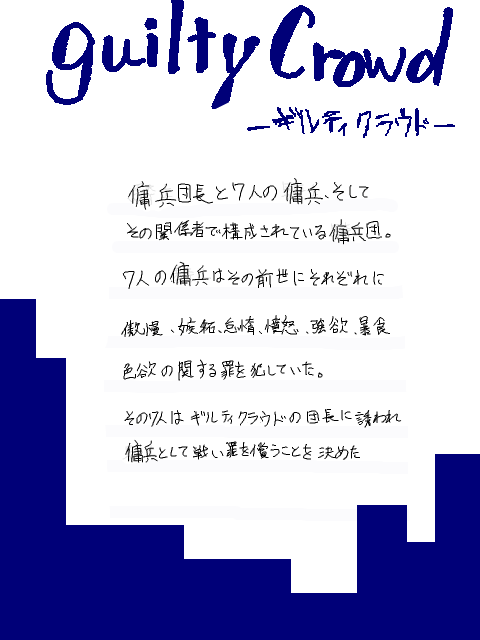 guilty Crowd
－ギルティクラウド－
傭兵団長と7人の傭兵、そして
その関係者で構成されている傭兵団。
7人の傭兵はその前世にそれぞれに
傲慢、嫉妬、怠惰、憤怒、強欲、暴食
色欲の関する罪を犯していた。
その7人はギルティクラウドの団長に誘われ
傭兵として戦い罪を償うことを決めた